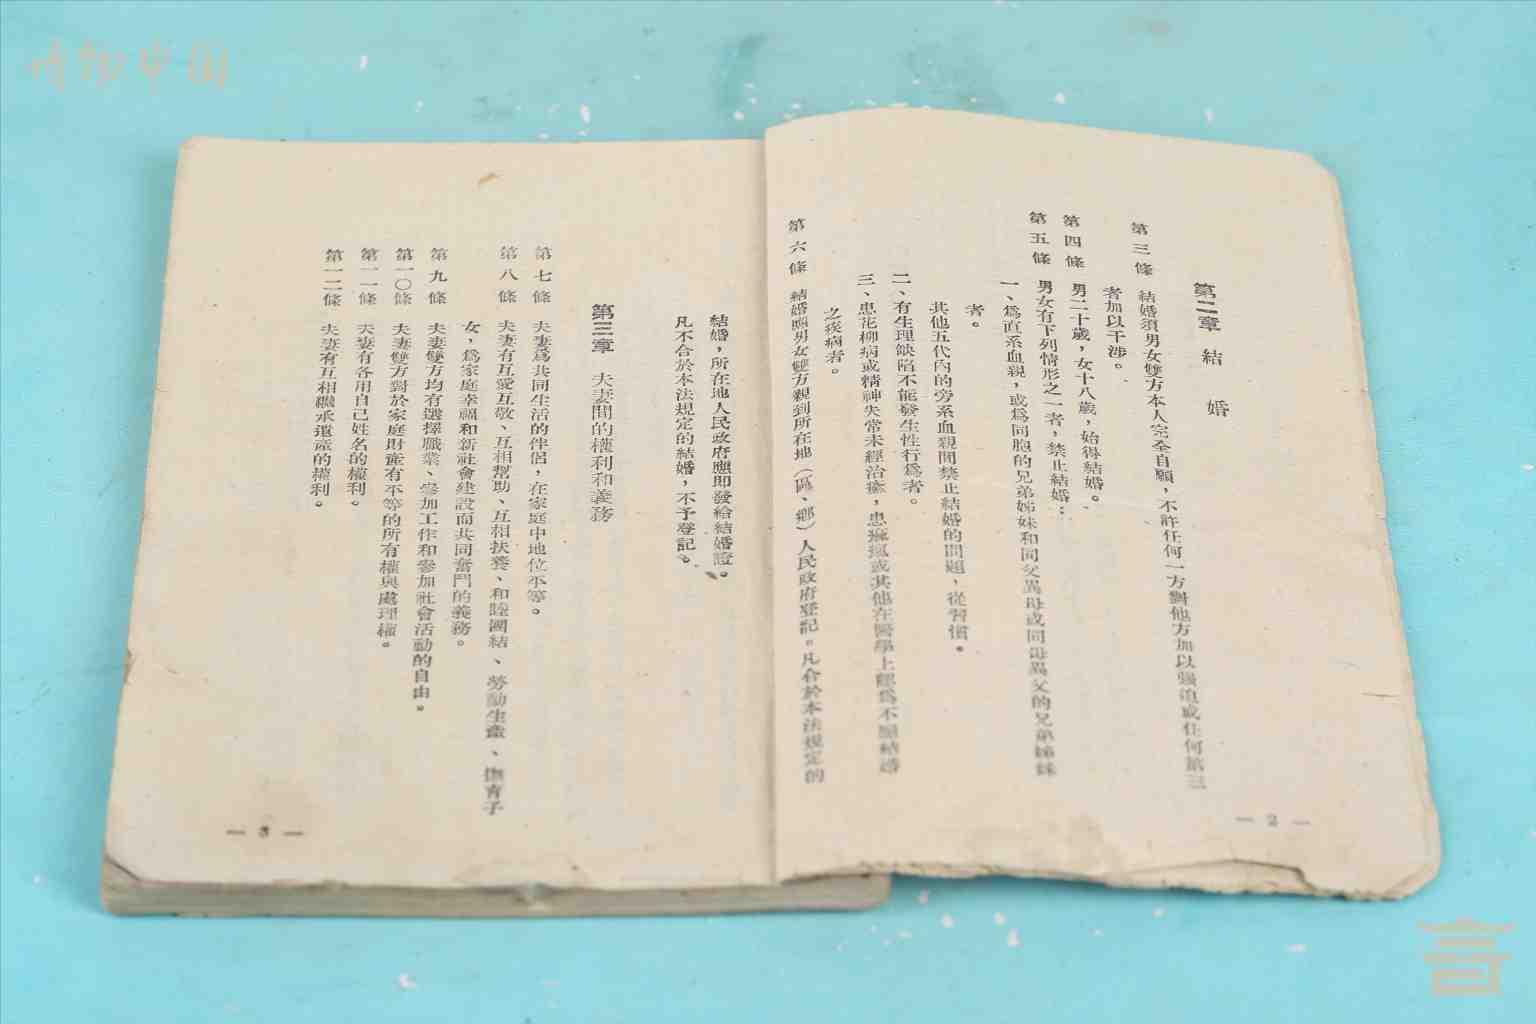 博物中国
第二章 結 婚
第三條 結婚須男女雙方本人完全自願，不許任何一方對他方加以强迫或任何第三
者加以干涉。
第四條 男二十歲，女十八歲，始得結婚。
第五條 男女有下列情形之一者，禁止結婚：
一、爲直系血親，或爲同胞的兄弟姊妹和同父異母或同母異父的兄弟姊妹
者。
其他五代內的旁系血親間禁止結婚的問題，從習慣。
二、有生理缺陷不能發生性行爲者。
三、患花柳病或精神失常未經治癒，患痲瘋或其他在醫學上認爲不應結婚
之疾病者。
第六條 結婚應男女雙方親到所在地（區、鄉）人民政府登記。凡合於本法規定的
— 2 —
結婚，所在地人民政府應即發給結婚證。
凡不合於本法規定的結婚，不予登記。
第三章 夫妻間的權利和義務
第七條 夫妻爲共同生活的伴侶，在家庭中地位平等。
第八條 夫妻有互愛互敬、互相幫助、互相扶養、和睦團結、勞動生產、撫育子
女，爲家庭幸福和新社會建設而共同奮鬥的義務。
第九條 夫妻雙方均有選擇職業、參加工作和參加社會活動的自由。
第一〇條 夫妻雙方對於家庭財產有平等的所有權與處理權。
第一一條 夫妻有各用自己姓名的權利。
第一二條 夫妻有互相繼承遺產的權利。
— 3 —